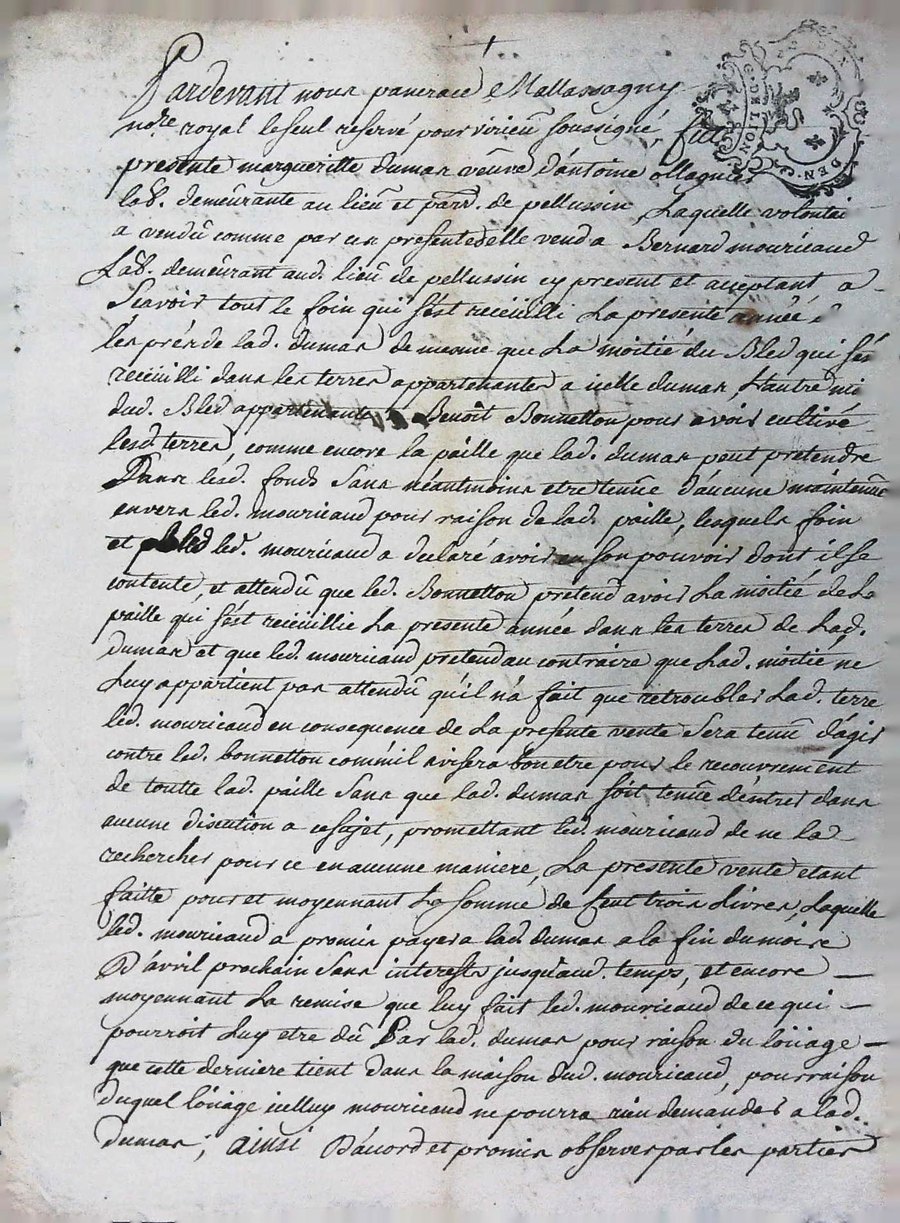 G. DE LION
GEN.
Pardevant nous pancrace Mallassagny
no.re royal le seul reservé pour virieu soussigné, fut
presente margueritte dumas veuve d'antoine ollagnier
lab. demeurante au lieu et parr. de pellussin, Laquelle volontai
a vendu comme par ces presentes elle vend a Bernard mouricaud
Lab. demeurant aud. lieu de pellussin cy present et acceptant a
Scavoir tout le foin qui s'est recëuilli La presente année
les prés de lad. dumas de mesme que La moitié du Bled qui s'es
recëuilli dans les terres appartenantes a icelle dumas, L'autre mi
dud. Bled appartenante a Benoit Bonnetton pour avoir cultivé
lesd. terres, comme encore la paille que lad. dumas peut pretendre
Dans lesd. fonds sans néantmoins etre tenue d'aucune maintenue
envers led. mouricaud pour raison de lad. paille, lesquels foin
et bled led. mouricaud a declaré avoir en son pouvoir dont il se
contente, et attendu que led. Bonnetton pretend avoir La moitié de La
paille qui s'est recëuillie La presente année dans les terres de Lad.
dumas et que led. mouricaud pretend au contraire que Lad. moitié ne
Luy appartient pas attendu qu'il n'a fait que retroubler Lad. terre
led. mouricaud en consequence de La presente vente Sera tenu d'agir
contre led. bonnetton comm'il avisera bon etre pour le recouvrement
de toutte lad. paille Sans que lad. dumas soit tenue d'entrer dans
aucune discution a ce sujet, promettant led. mouricaud de ne la
rechercher pour ce en aucune maniere, La presente vente etant
faitte pour et moyennant La somme de Cent trois Livres, Laquelle
led. mouricaud a promis payer a lad. dumas a la fin du mois
D'avril prochain sans interests jusqu'aud. temps, et encore —
moyennant La remise que luy fait led. mouricaud de ce qui —
pourroit Luy etre dû Par lad. dumas pour raison du löüage —
que cette derniere tient dans la maison dud. mouricaud, pour raison
duquel löüage icelluy mouricaud ne pourra rien demander a lad.
dumas; ainsi D'accord et promis observer par les parties